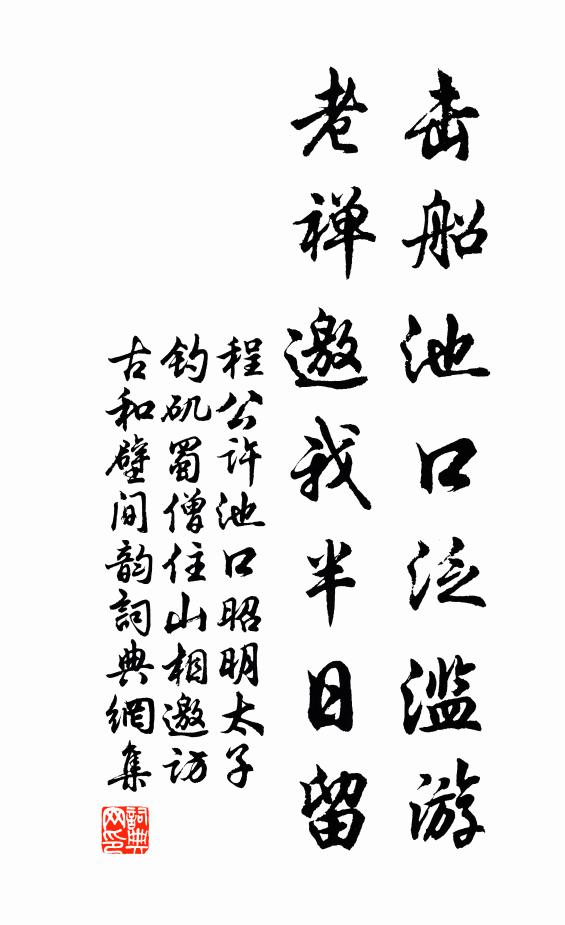 击船池口泛滥游
老禅邀我半日留
程公许池口昭明太子
钓矶蜀僧住山相邀访
古和壁间韵詞典網集
詞典网印